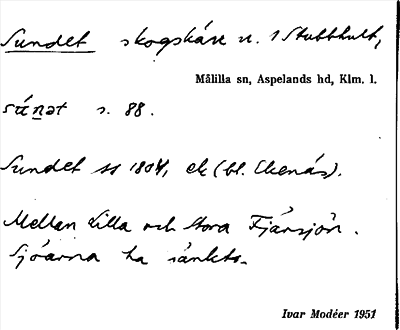 Sundet skogskärr n. 1 Stubbhult,
Målilla sn, Aspelands hd, Klm. l.
súnət s. 88.
Sundet ss 1804, ek (bl. Ekenäs).
Mellan Lilla och Stora Fjärsjön.
Sjöarna ha sänkts.
Ivar Modéer 1951